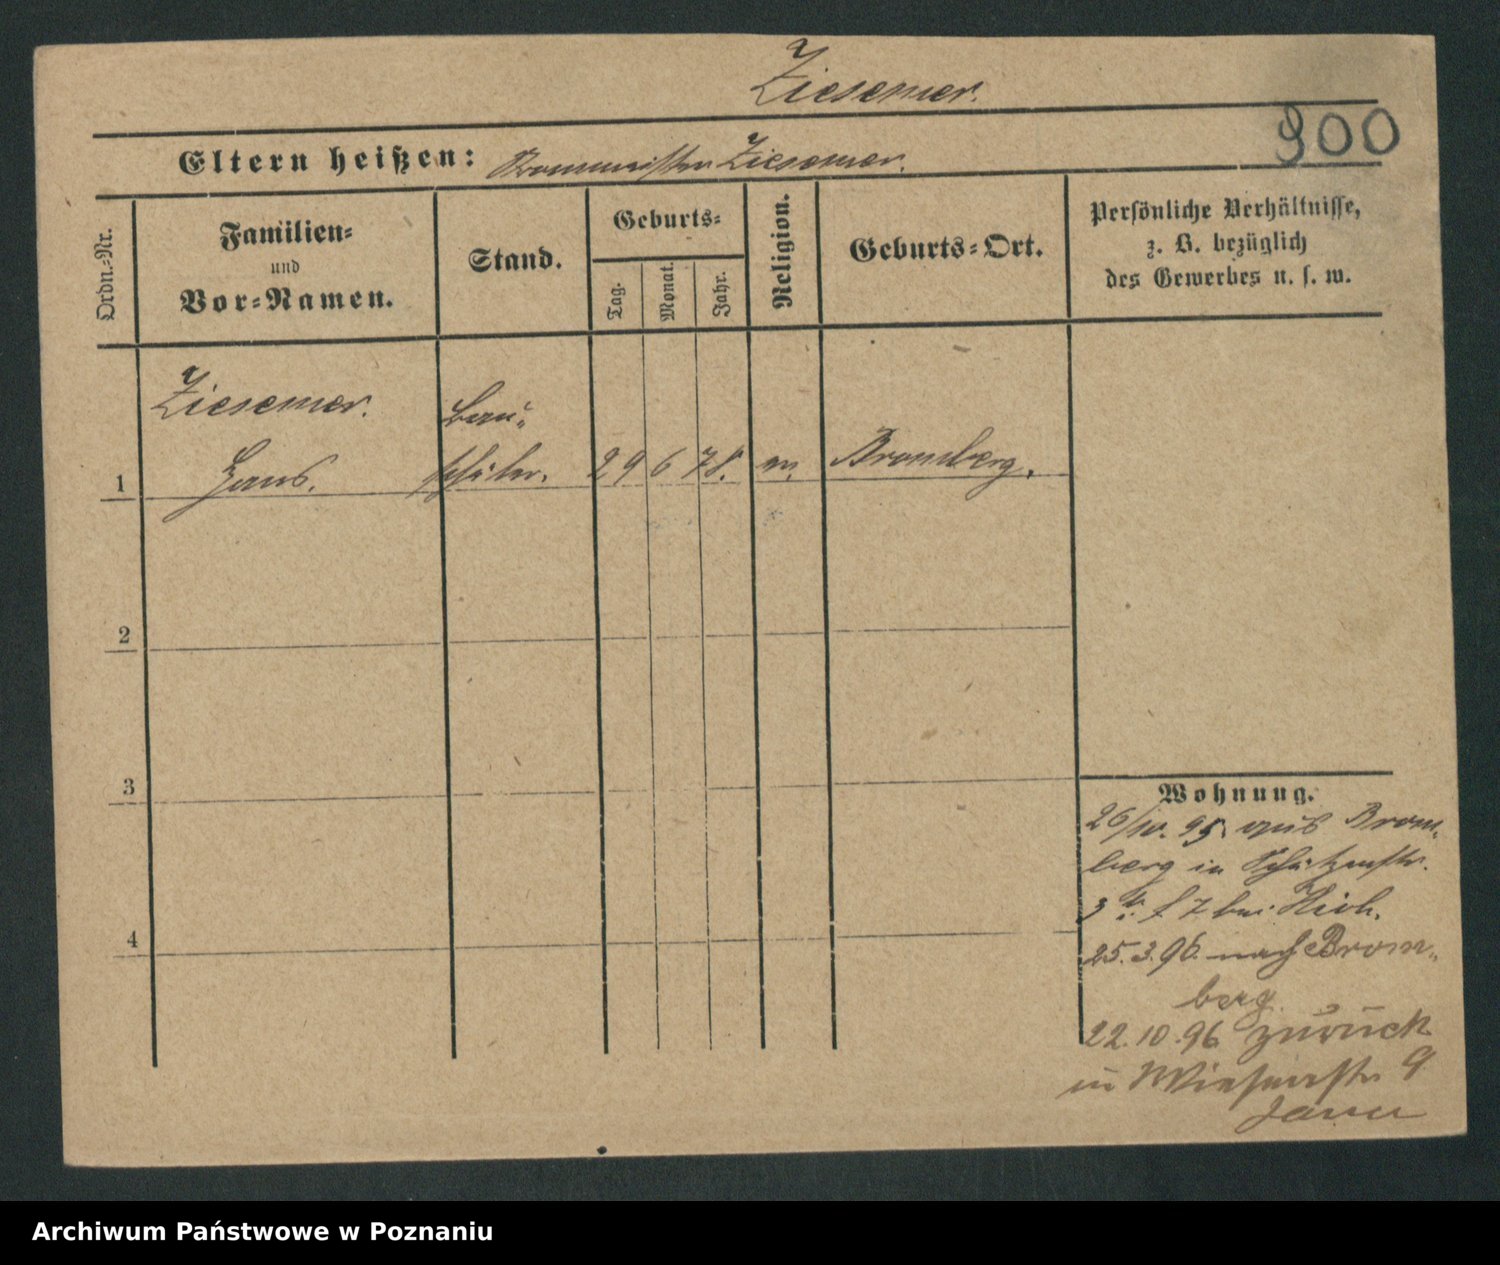 Ziesemer.
900
Eltern heißen: Ziesemer.
Ordn.-Nr.
Familien-
und
Vor-Namen.
Stand.
Geburts-
Tag.
Monat.
Jahr.
Religion.
Geburts-Ort.
Persönliche Verhältnisse,
z. B. bezüglich
des Gewerbes u. s. w.
Ziesemer.
Bau-
1 Hans. schüler. 29 6 78. ev. Bromberg.
2
3
4
Wohnung.
26/10. 95. aus Brom-
berg in Schützenstr.
3 7 bei
25.3.96. nach Brom-
berg
22.10.96 zurück
in Wiesenstr 9
Archiwum Państwowe w Poznaniu